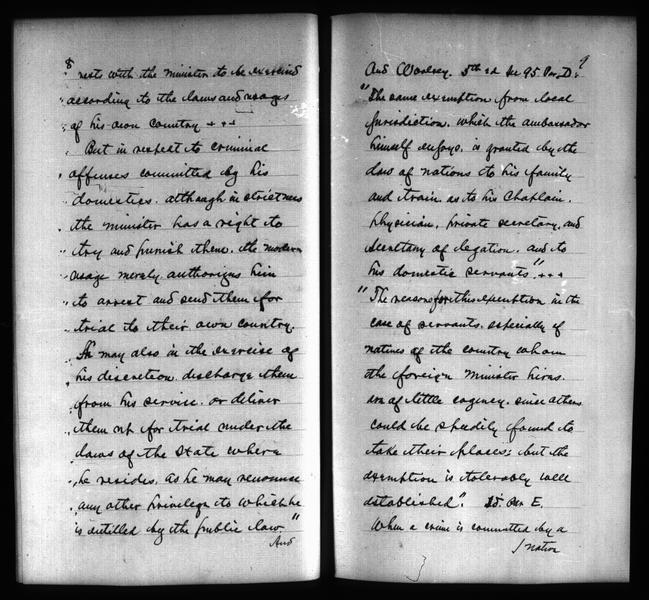 8
" rests with the minister to be exercised
" according to the laws and usages
" of his own country + + +
" But in respect to criminal
" offenses committed by his
" domestics, although in strictness
" the minister has a right to
" try and punish them, the modern
" usage merely authorizes him
" to arrest and send them for
" trial to their own country.
" He may also in the exercise of
" his discretion, discharge them
" from his service, or deliver
" them up for trial under the
" laws of the State where
" he resides, as he may renounce
" any other privilege to which he
" is entitled by the public law."
And
9
And Woolsey, 5th ed Sec 95 Par. D.
"The same exemption from local
jurisdiction, which the ambassador
himself enjoys, is granted by the
law of nations to his family
and train, as to his Chaplain,
physician, private secretary, and
secretary of legation, and to
his domestic servants." + + +
"The reasons for this exemption in the
case of servants, especially if
natives of the country whom
the foreign minister hires,
are of little cogency, since others
could be speedily found to
take their places; but the
exemption is tolerably well
established". Id. Par E.
When a crime is committed by a
/ native